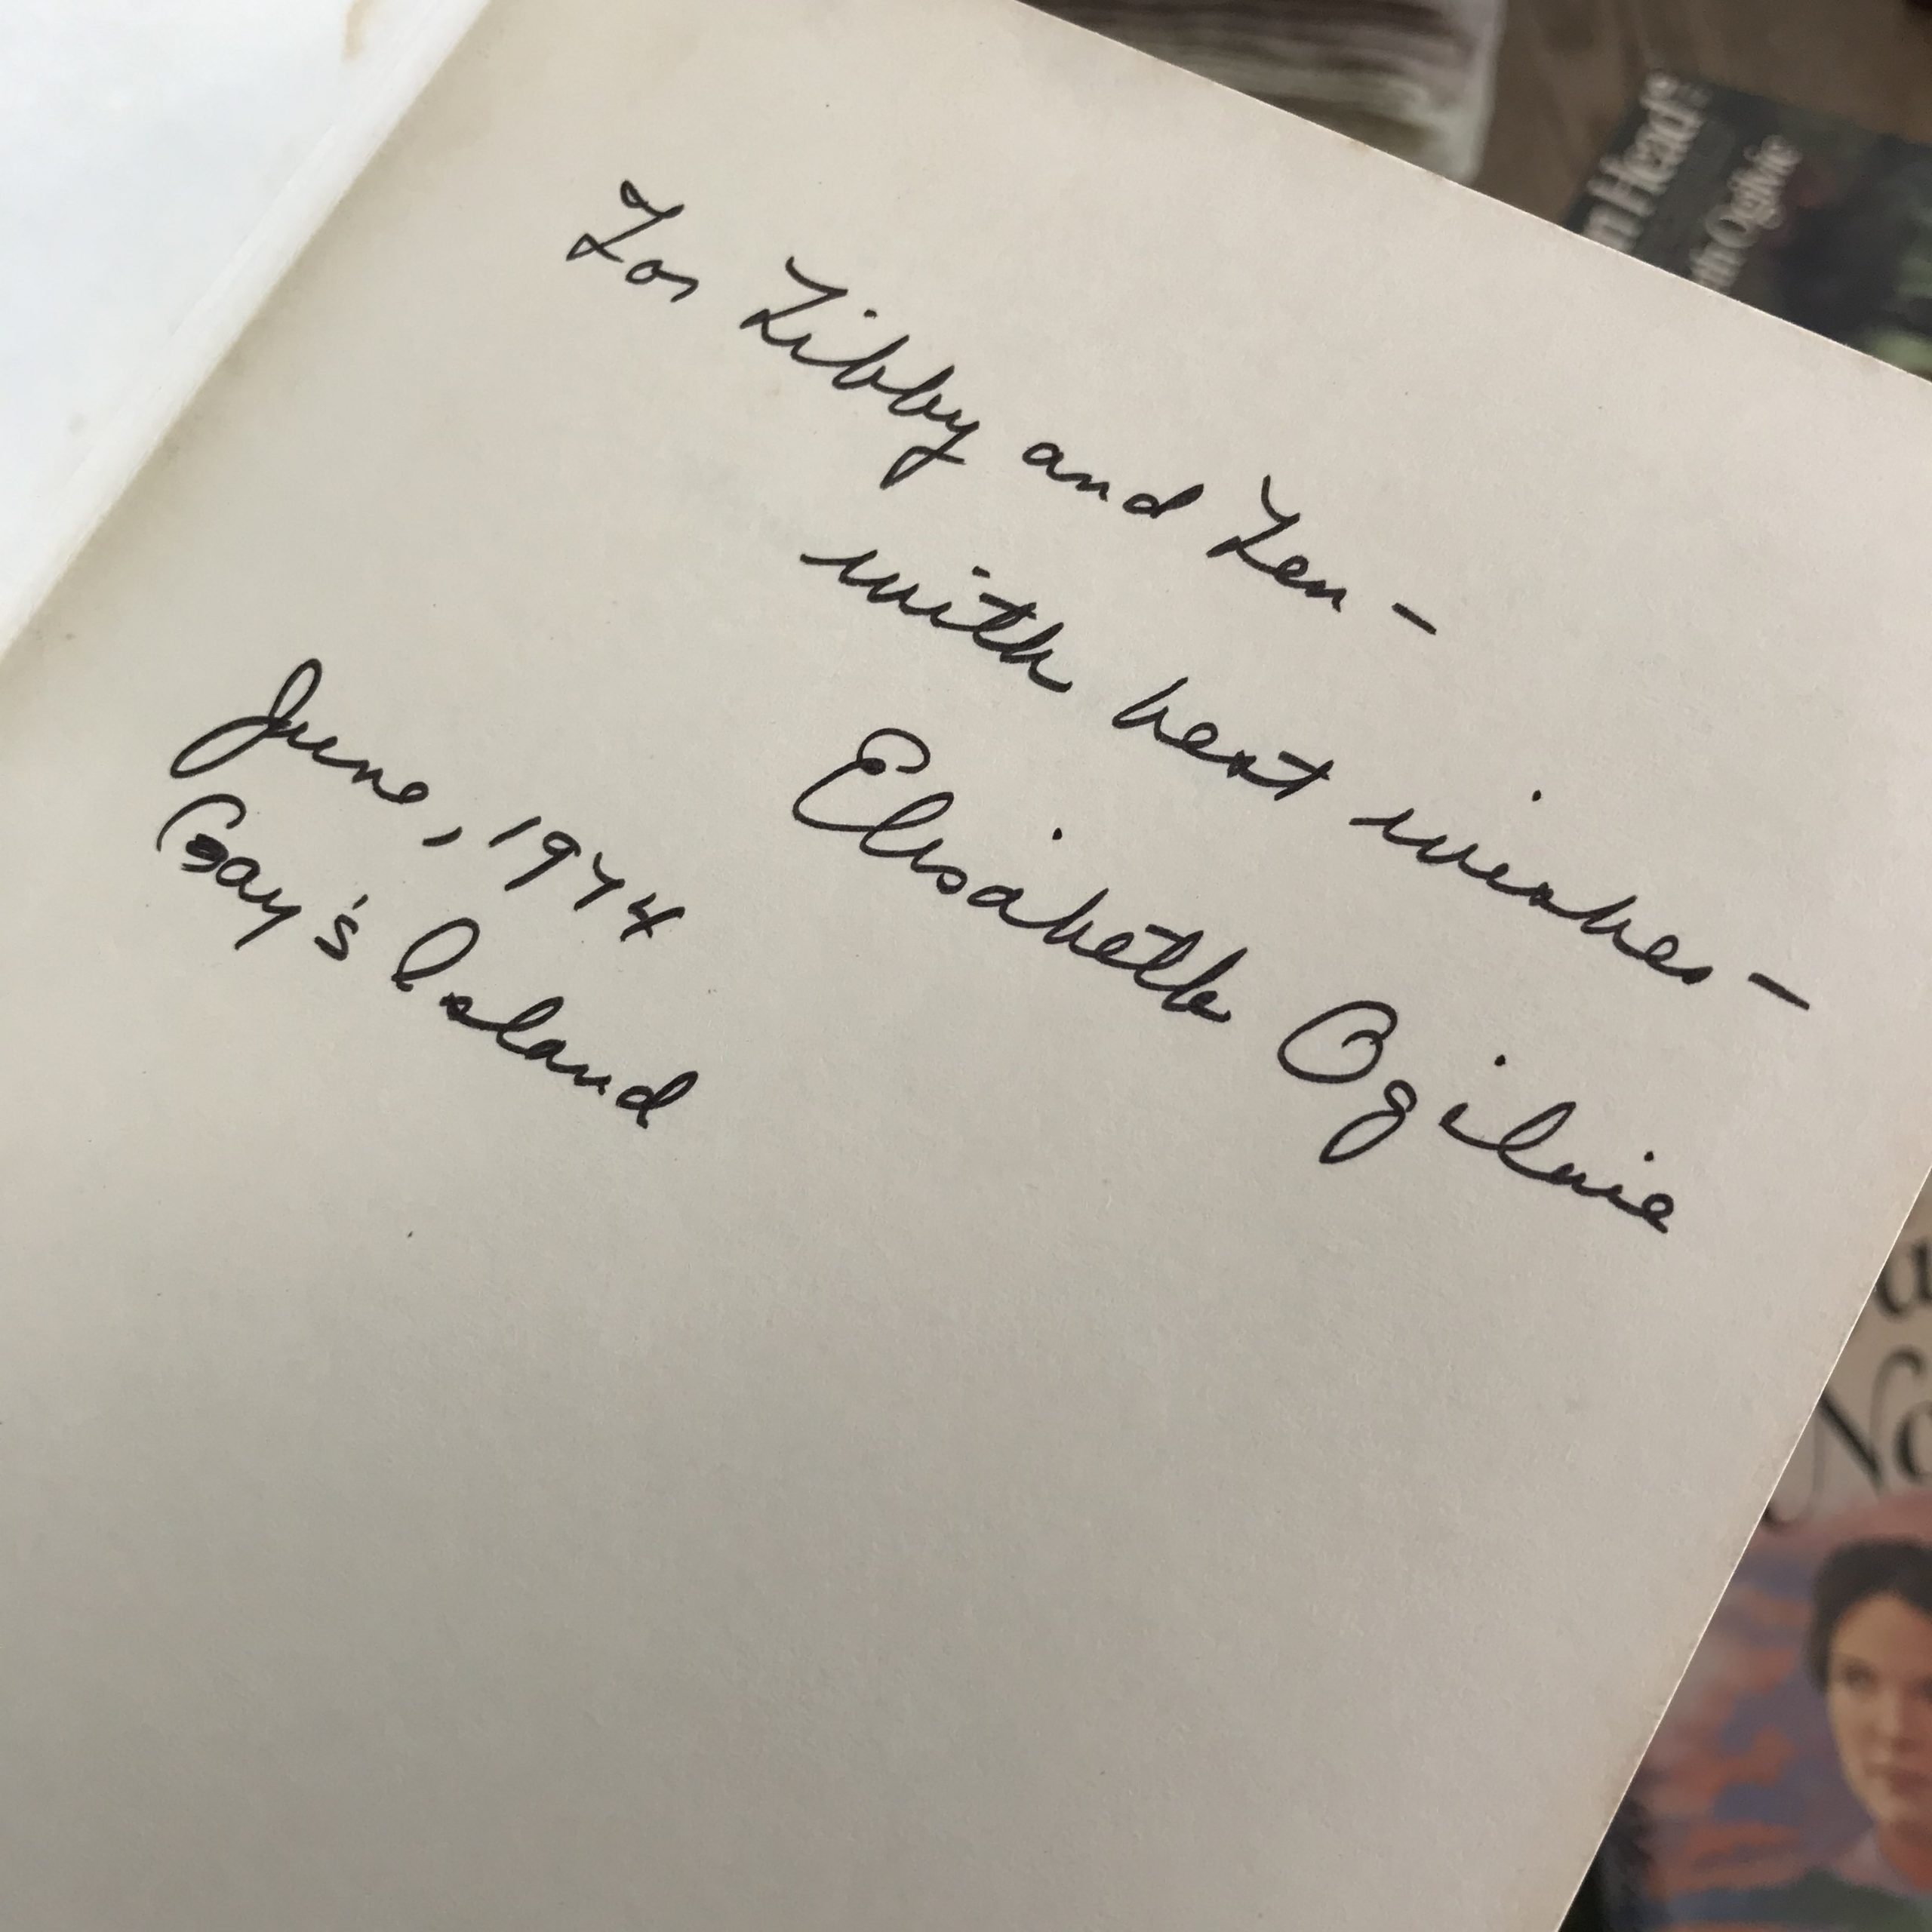 For Libby and Len –
with best wishes –
Elisabeth Ogilvie
June, 1974
Gay's Island
n Head
th Ogilvie
a
No